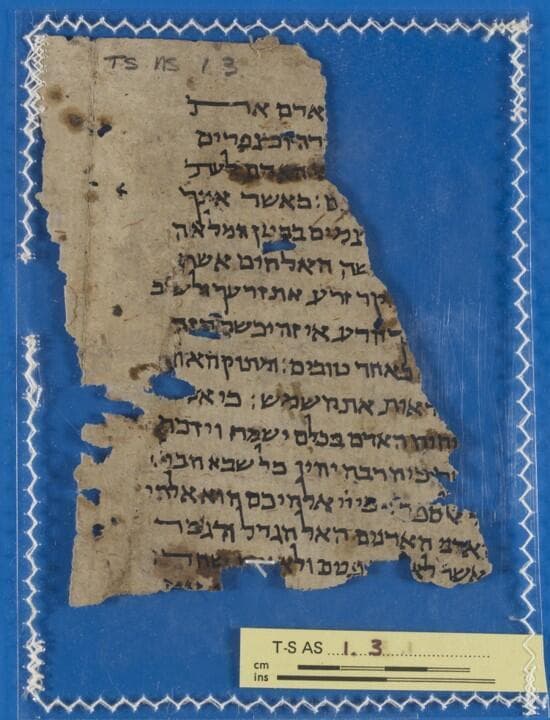 TS AS 1 3
אדם את
וכצפרים
האדם לעת
כאשר אינך
צמים בבטן המלאה
שה האלהים אשר
קר זרע את זרעך
תדע אי זה יכשר הזה
כאחד טובים : ומתוק האור
ראות את השמש : כי
יחיה האדם בכלם ישמח ויזכר
הרבה יהיו כל שבא הבל
כי יי אלהיכם הוא אלהי
אדני האדנים האל הגדל הגבר
אשר לא פנים ולא שחד
T-S AS 1. 3
cm
ins